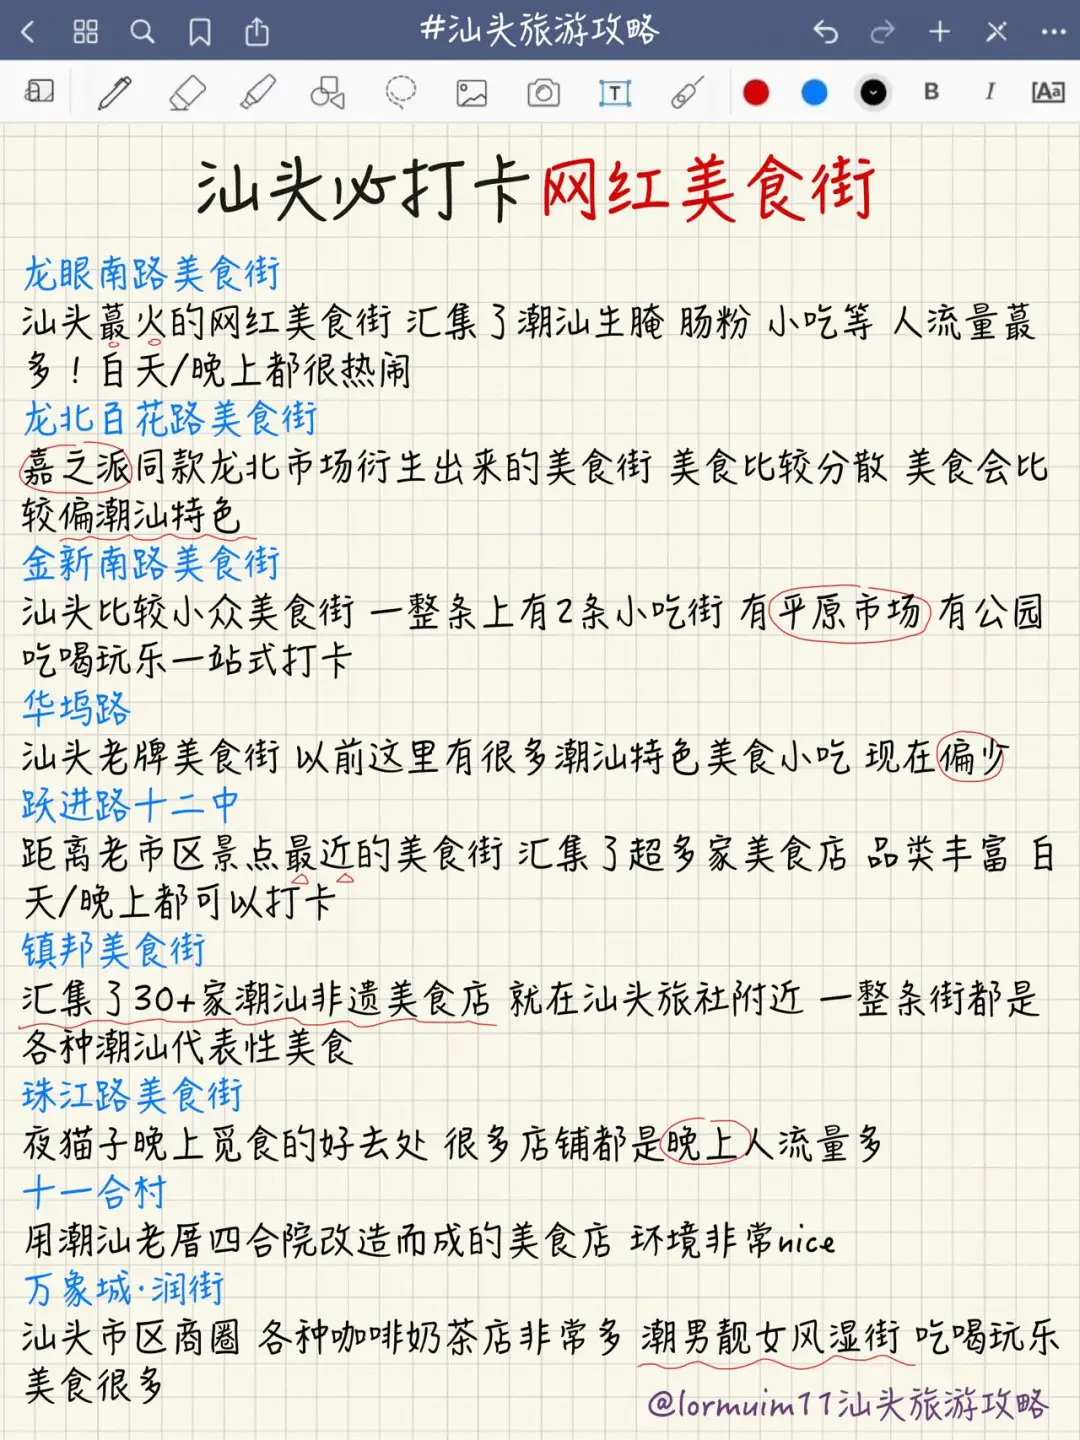 #汕头旅游攻略
T
B I Aa
汕头必打卡网红美食街
龙眼南路美食街
汕头蕞火的网红美食街 汇集了潮汕生腌 肠粉 小吃等 人流量蕞
多！白天/晚上都很热闹
龙北百花路美食街
嘉之派同款龙北市场衍生出来的美食街 美食比较分散 美食会比
较偏潮汕特色
金新南路美食街
汕头比较小众美食街 一整条上有2条小吃街 有平原市场 有公园
吃喝玩乐一站式打卡
华坞路
汕头老牌美食街 以前这里有很多潮汕特色美食小吃 现在偏少
跃进路十二中
距离老市区景点最近的美食街 汇集了超多家美食店 品类丰富 白
天/晚上都可以打卡
镇邦美食街
汇集了30+家潮汕非遗美食店 就在汕头旅社附近 一整条街都是
各种潮汕代表性美食
珠江路美食街
夜猫子晚上觅食的好去处 很多店铺都是晚上人流量多
十一合村
用潮汕老厝四合院改造而成的美食店 环境非常nice
万象城·润街
汕头市区商圈 各种咖啡奶茶店非常多 潮男靓女风湿街 吃喝玩乐
美食很多
@lormuim11汕头旅游攻略